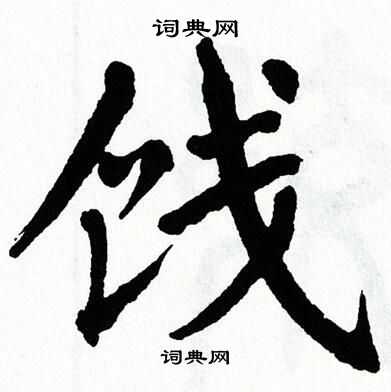 词典网
饯
词典网